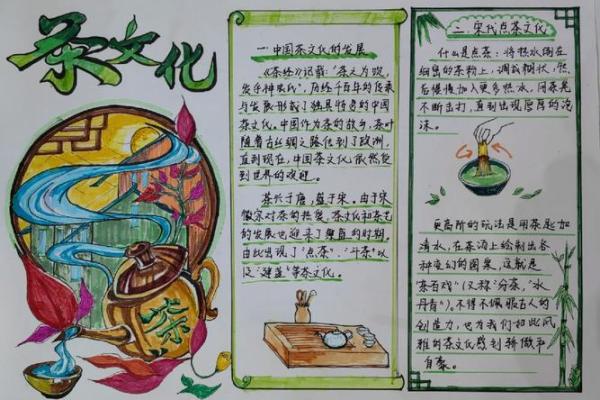 茶文化
茶
一.中国茶文化的发展
《茶经》记载:“茶之为饮,
发乎神农氏”,历经千百年的传承
与发展形成了独具特色的中国
茶文化。中国作为茶的故乡,茶叶
随着古丝绸之路传到了欧洲,
直到现在,中国茶文化依然受
到世界的欢迎。
茶兴于唐,盛于宋。由于宋
徽宗对茶的热衷,茶文化和茶艺
的发展也迎来了鼎盛的时期。
由此出现了“点茶”、“斗茶”以
及“建盏”等茶文化。
二.宋代点茶文化
什么是点茶:将热水倒在
细密的茶粉上,调成糊状,然
后慢慢加入更多热水,用茶筅
不断击打,直到出现厚厚的泡
沫。
更高阶的玩法是用茶匙加
清水,在茶汤上绘制出各
种变幻的图案,这就是
“茶百戏”(又称“分茶,“水
丹青”),不得不佩服古人的
创造力,也为我们如此风
雅的茶文化感到骄傲和
自豪。